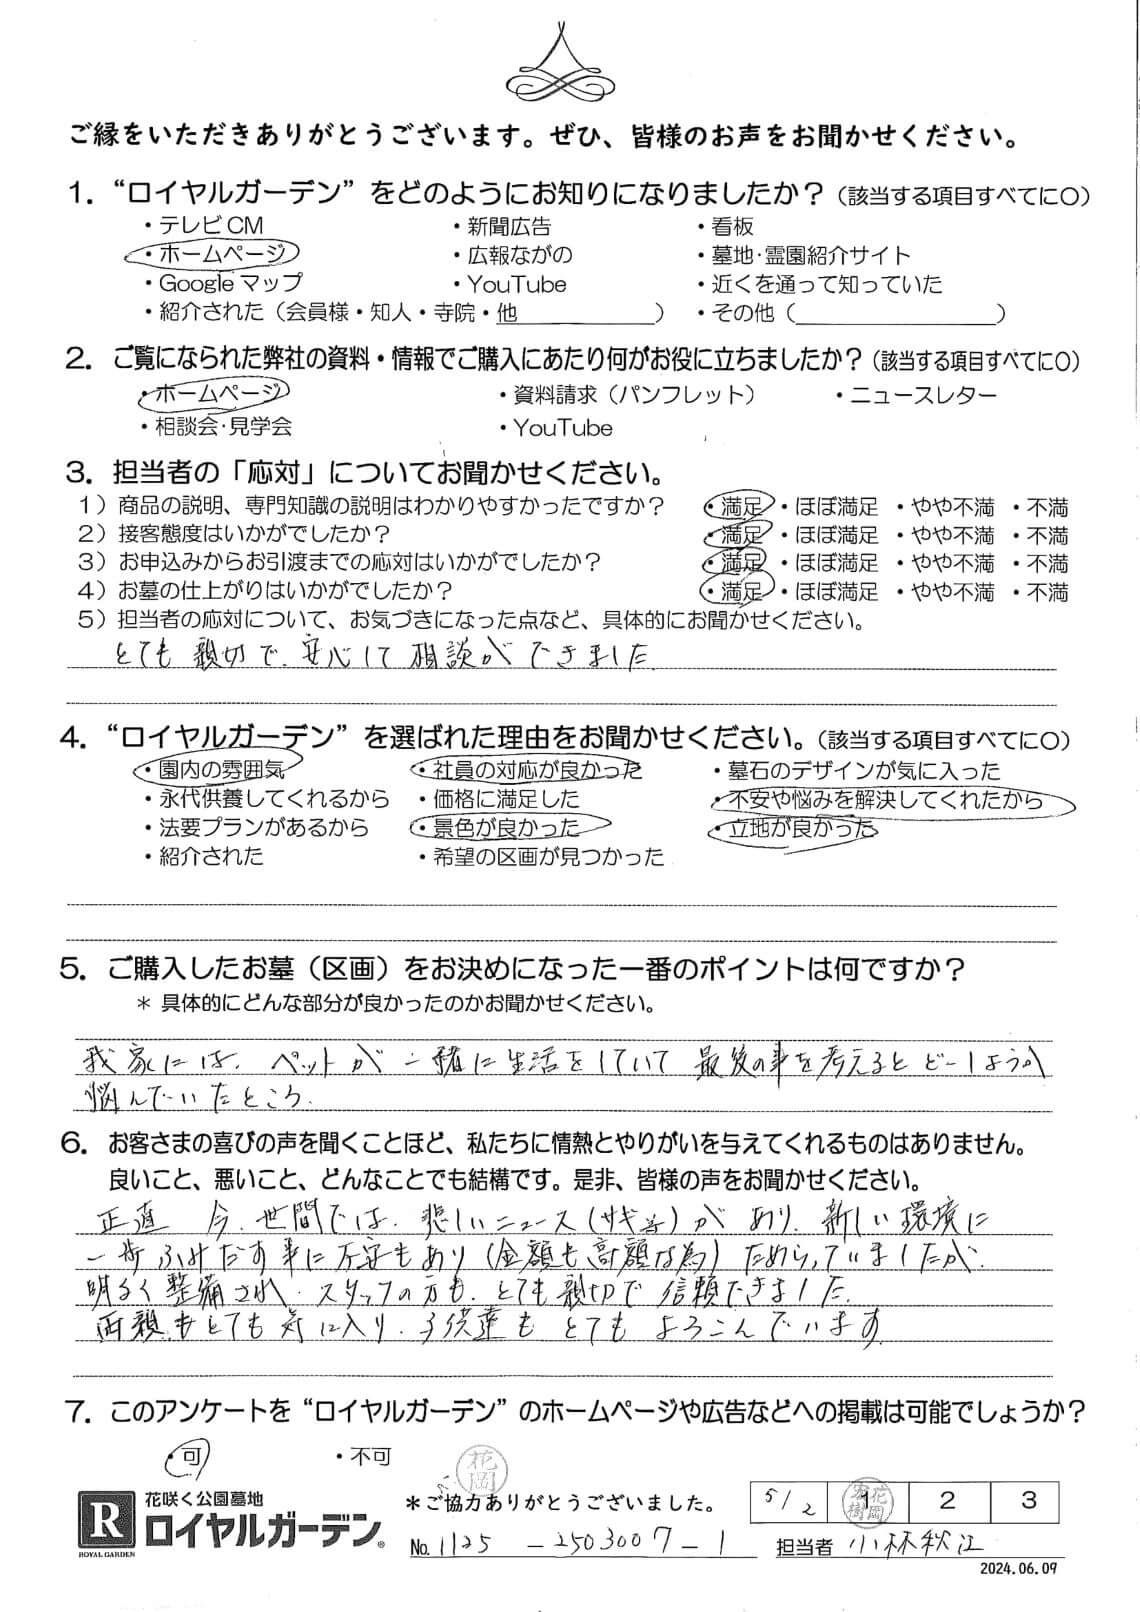 ご縁をいただきありがとうございます。ぜひ、皆様のお声をお聞かせください。
1．“ロイヤルガーデン”をどのようにお知りになりましたか？（該当する項目すべてに〇）
・テレビCM ・新聞広告 ・看板
・ホームページ ・広報ながの ・墓地･霊園紹介サイト
・Googleマップ ・YouTube ・近くを通って知っていた
・紹介された（会員様・知人・寺院・他＿＿＿＿＿＿） ・その他（＿＿＿＿＿＿＿＿＿）
2．ご覧になられた弊社の資料・情報でご購入にあたり何がお役に立ちましたか？（該当する項目すべてに〇）
・ホームページ ・資料請求（パンフレット） ・ニュースレター
・相談会･見学会 ・YouTube
3．担当者の「応対」についてお聞かせください。
1）商品の説明、専門知識の説明はわかりやすかったですか？ ・満足 ・ほぼ満足 ・やや不満 ・不満
2）接客態度はいかがでしたか？ ・満足 ・ほぼ満足 ・やや不満 ・不満
3）お申込みからお引渡までの応対はいかがでしたか？ ・満足 ・ほぼ満足 ・やや不満 ・不満
4）お墓の仕上がりはいかがでしたか？ ・満足 ・ほぼ満足 ・やや不満 ・不満
5）担当者の応対について、お気づきになった点など、具体的にお聞かせください。
とても親切で、安心して相談ができました
4．“ロイヤルガーデン”を選ばれた理由をお聞かせください。（該当する項目すべてに〇）
・園内の雰囲気 ・社員の対応が良かった ・墓石のデザインが気に入った
・永代供養してくれるから ・価格に満足した ・不安や悩みを解決してくれたから
・法要プランがあるから ・景色が良かった ・立地が良かった
・紹介された ・希望の区画が見つかった
5．ご購入したお墓（区画）をお決めになった一番のポイントは何ですか？
＊具体的にどんな部分が良かったのかお聞かせください。
我家には、ペットが一緒に生活をしていて 最後の事を考えるとどーしようか
悩んでいたところ、
6．お客さまの喜びの声を聞くことほど、私たちに情熱とやりがいを与えてくれるものはありません。
良いこと、悪いこと、どんなことでも結構です。是非、皆様の声をお聞かせください。
正直 今、世間では、悲しいニュース（サギ等）があり、新しい環境に
一歩ふみだす事に不安もあり（金額も高額な為）ためらっていましたが、
明るく整備され、スタッフの方も、とても親切で信頼できました。
両親もとても気に入り、子供達もとてもよろこんでいます
7．このアンケートを“ロイヤルガーデン”のホームページや広告などへの掲載は可能でしょうか？
・可 ・不可
花岡
R ROYAL GARDEN
花咲く公園墓地
ロイヤルガーデン®
＊ご協力ありがとうございました。
5/2 1 2 3
花岡宏樹
No. 1125－2503007－1 担当者 小林秋江
2024.06.09